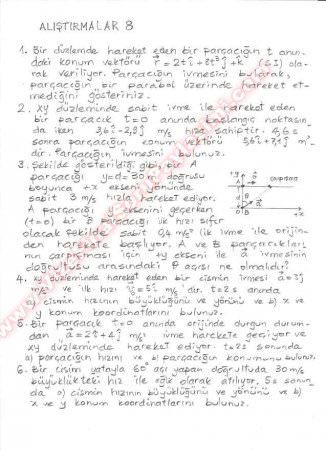 ALIŞTIRMALAR 8
1. Bir düzlemde hareket eden bir parçacığın t anın-
daki konum vektörü r=2ti+8t²j+k (SI) ola-
rak veriliyor. Parçacığın ivmesini bularak,
parçacığın bir parabol üzerinde hareket et-
mediğini gösteriniz.
2. xy düzleminde sabit ivme ile hareket eden
bir parçacık t=0 anında başlangıç noktasın-
da iken 3,6i-2,9j m/s hıza sahiptir. 4,6 s
sonra parçacığın konum vektörü 5,6i+7,1j m'
dir. Parçacığın ivmesini bulunuz.
3. Şekilde gösterildiği gibi bir A
parçacığı y=d=30m doğrusu
boyunca +x ekseni yönünde
sabit 3 m/s hızla hareket ediyor.
A parçacığı y eksenini geçerken
(t=0) bir B parçacığı ilk hızı sıfır
olacak şekilde sabit 0,4 m/s² lik ivme ile orijin-
den harekete başlıyor. A ve B parçacıkları-
nın çarpışması için +y ekseni ile a ivmesinin
doğrultusu arasındaki θ açısı ne olmalıdır?
çarpışma
4. xy düzleminde hareket eden bir cismin ivmesi a=3j
m/s² ve ilk hızı v=5i m/s' dir. t=2s anında
a) cismin hızının büyüklüğünü ve yönünü ve b) x ve
y konum koordinatlarını bulunuz.
5. Bir parçacık t=0 anında orijinde durgun durum-
dan a=2i+4j m/s² ivme harekete geçiyor ve
xy düzleminde hareket ediyor. t=2s sonunda
a) parçacığın hızını ve b) parçacığın konumunu bulunuz.
6. Bir cisim yatayla 60° açı yapan doğrultuda 30 m/s
büyüklükteki hız ile eğik olarak atılıyor. 5s sonun-
da a) cismin hızının büyüklüğünü ve yönünü ve b)
x ve y konum koordinatlarını bulunuz.